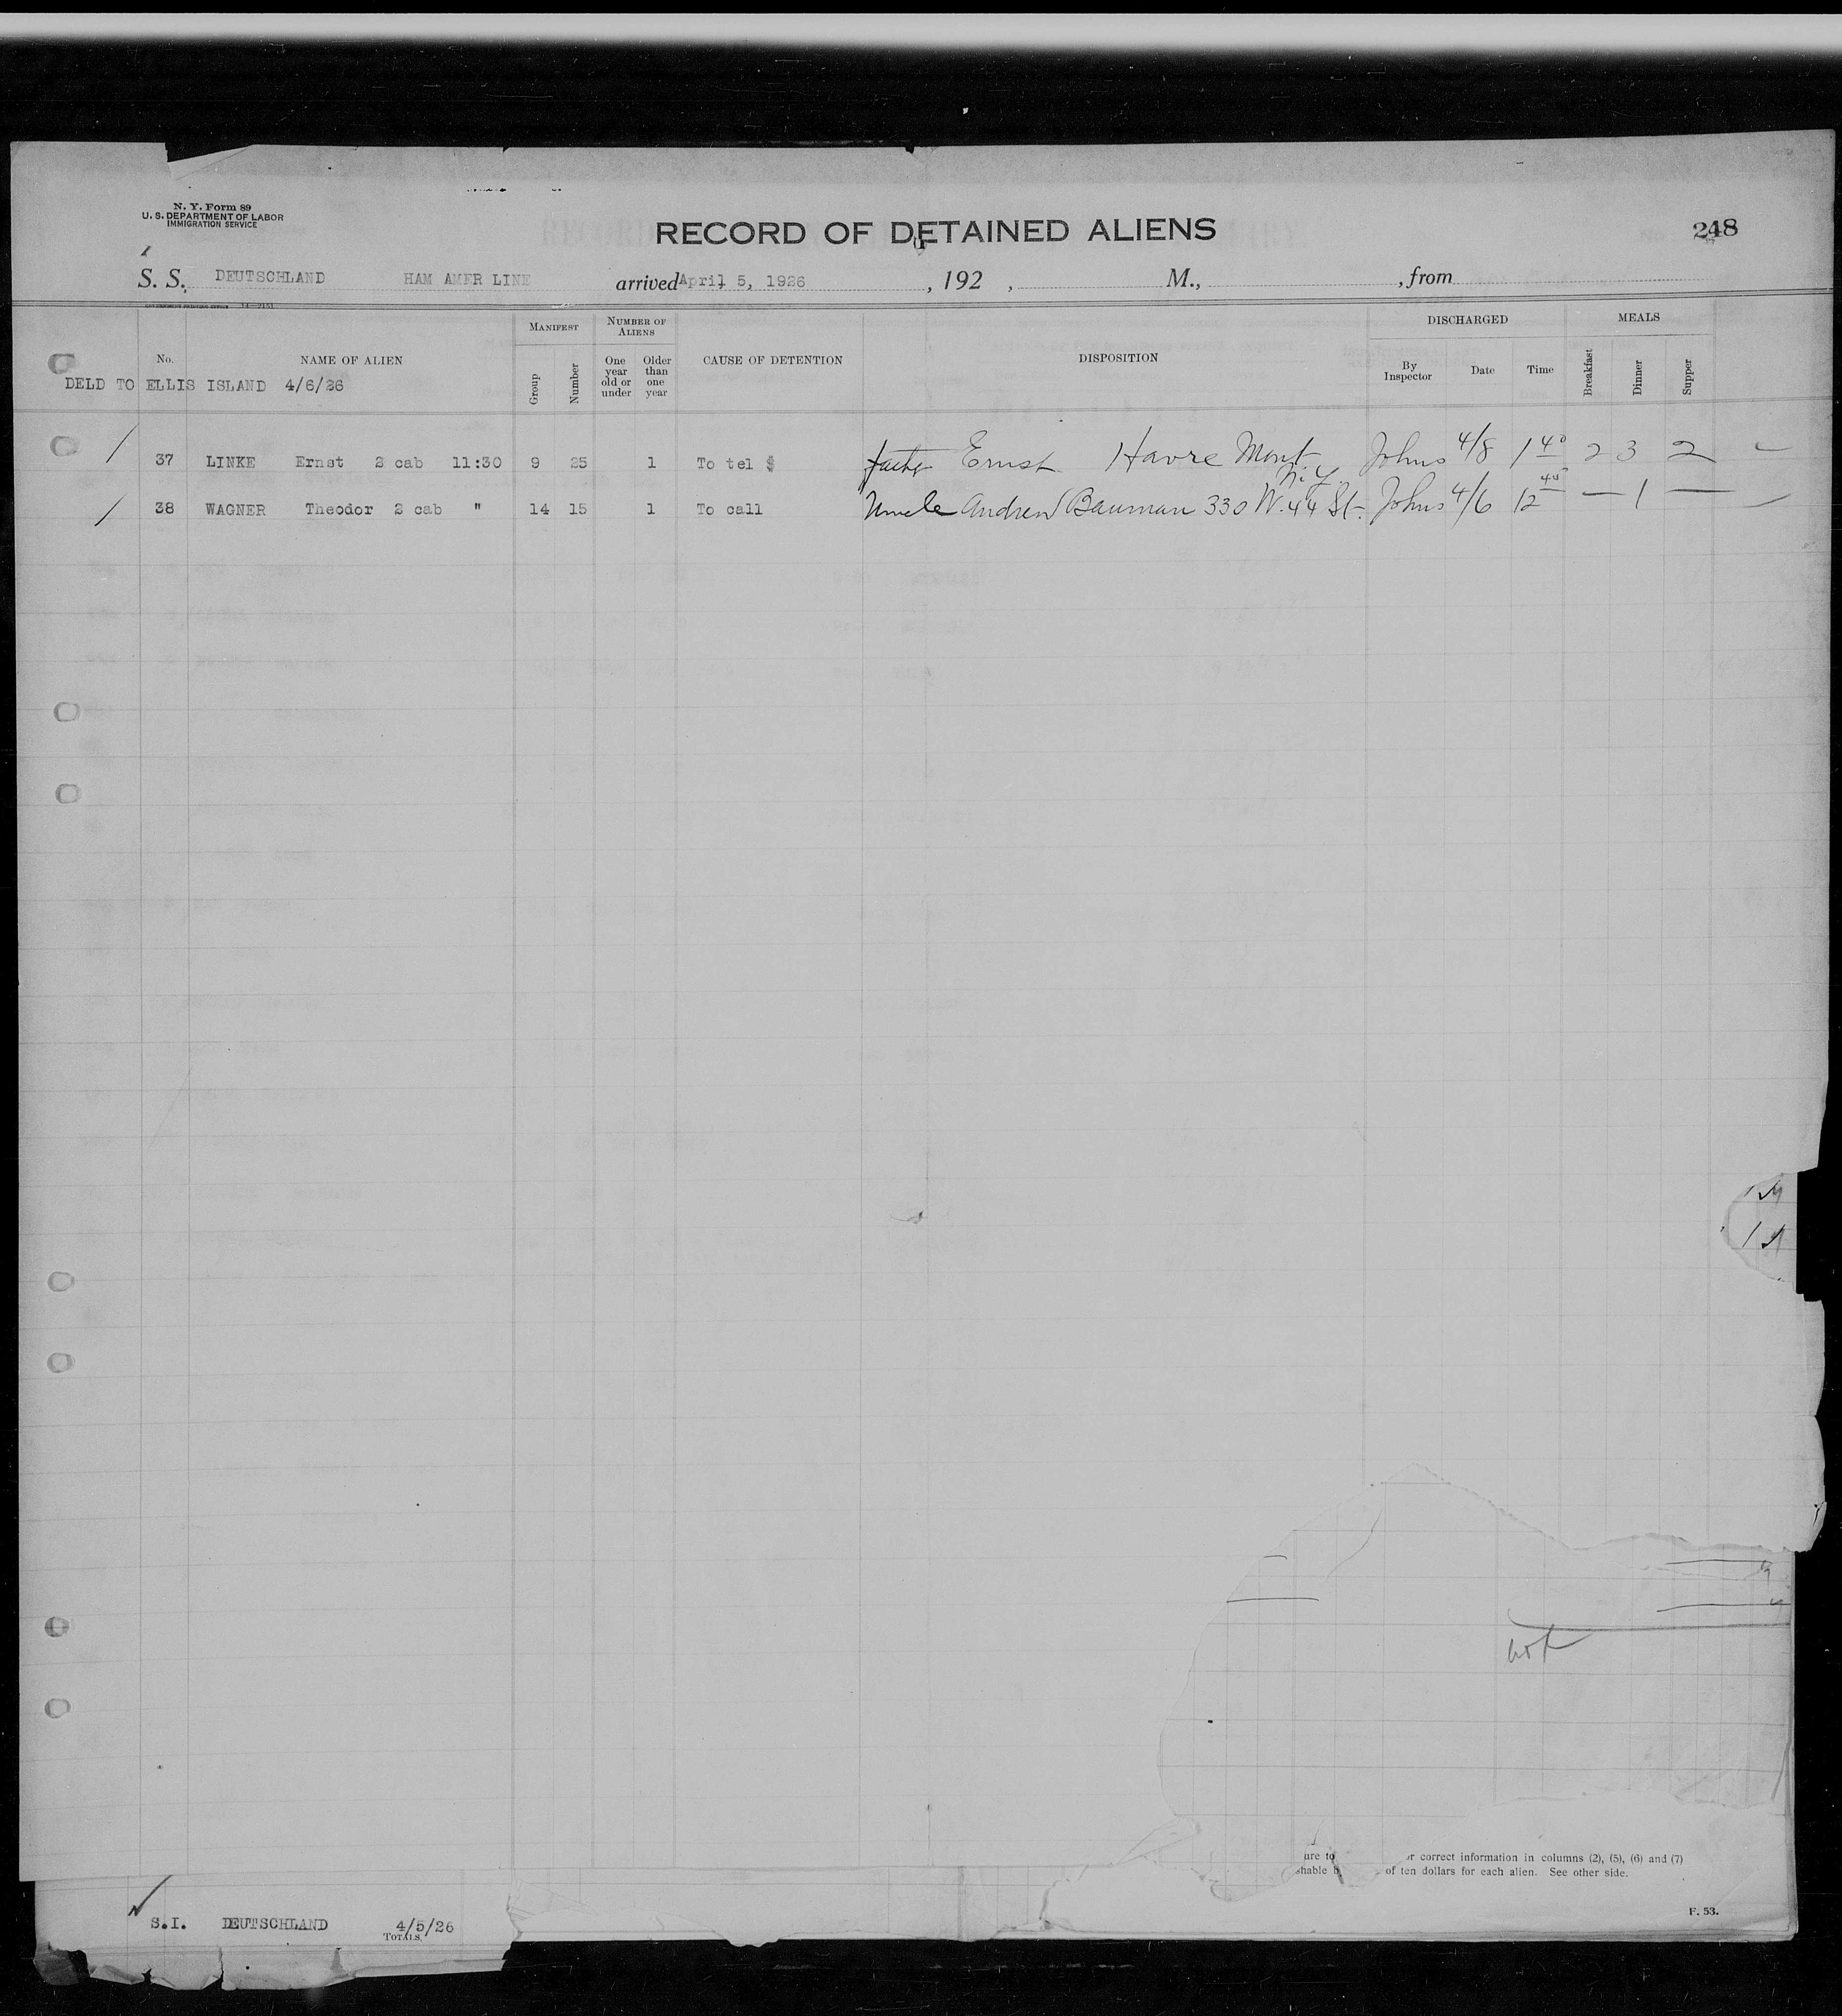 N. Y. Form 89
U. S. DEPARTMENT OF LABOR
IMMIGRATION SERVICE
RECORD OF DETAINED ALIENS
248
S. S. DEUTSCHLAND HAM AMER LINE arrived April 5, 1926 , 192 , M., , from
GOVERNMENT PRINTING OFFICE
MANIFEST NUMBER OF ALIENS DISCHARGED MEALS
No. NAME OF ALIEN Group Number One year old or under Older than one year CAUSE OF DETENTION DISPOSITION By Inspector Date Time Breakfast Dinner Supper
DELD TO ELLIS ISLAND 4/6/26
37 LINKE Ernst 2 cab 11:30 9 25 1 To tel $ Ernst Havre Mont. Johns 4/8 1 40 2 3 2
N.Y.
38 WAGNER Theodor 2 cab " 14 15 1 To call Uncle Andrew Bauman 330 W. 44 St. Johns 4/6 12 — 1 —
not
ure to or correct information in columns (2), (5), (6) and (7)
shable b of ten dollars for each alien. See other side.
F. 53.
S.I. DEUTSCHLAND 4/5/26
TOTALS.